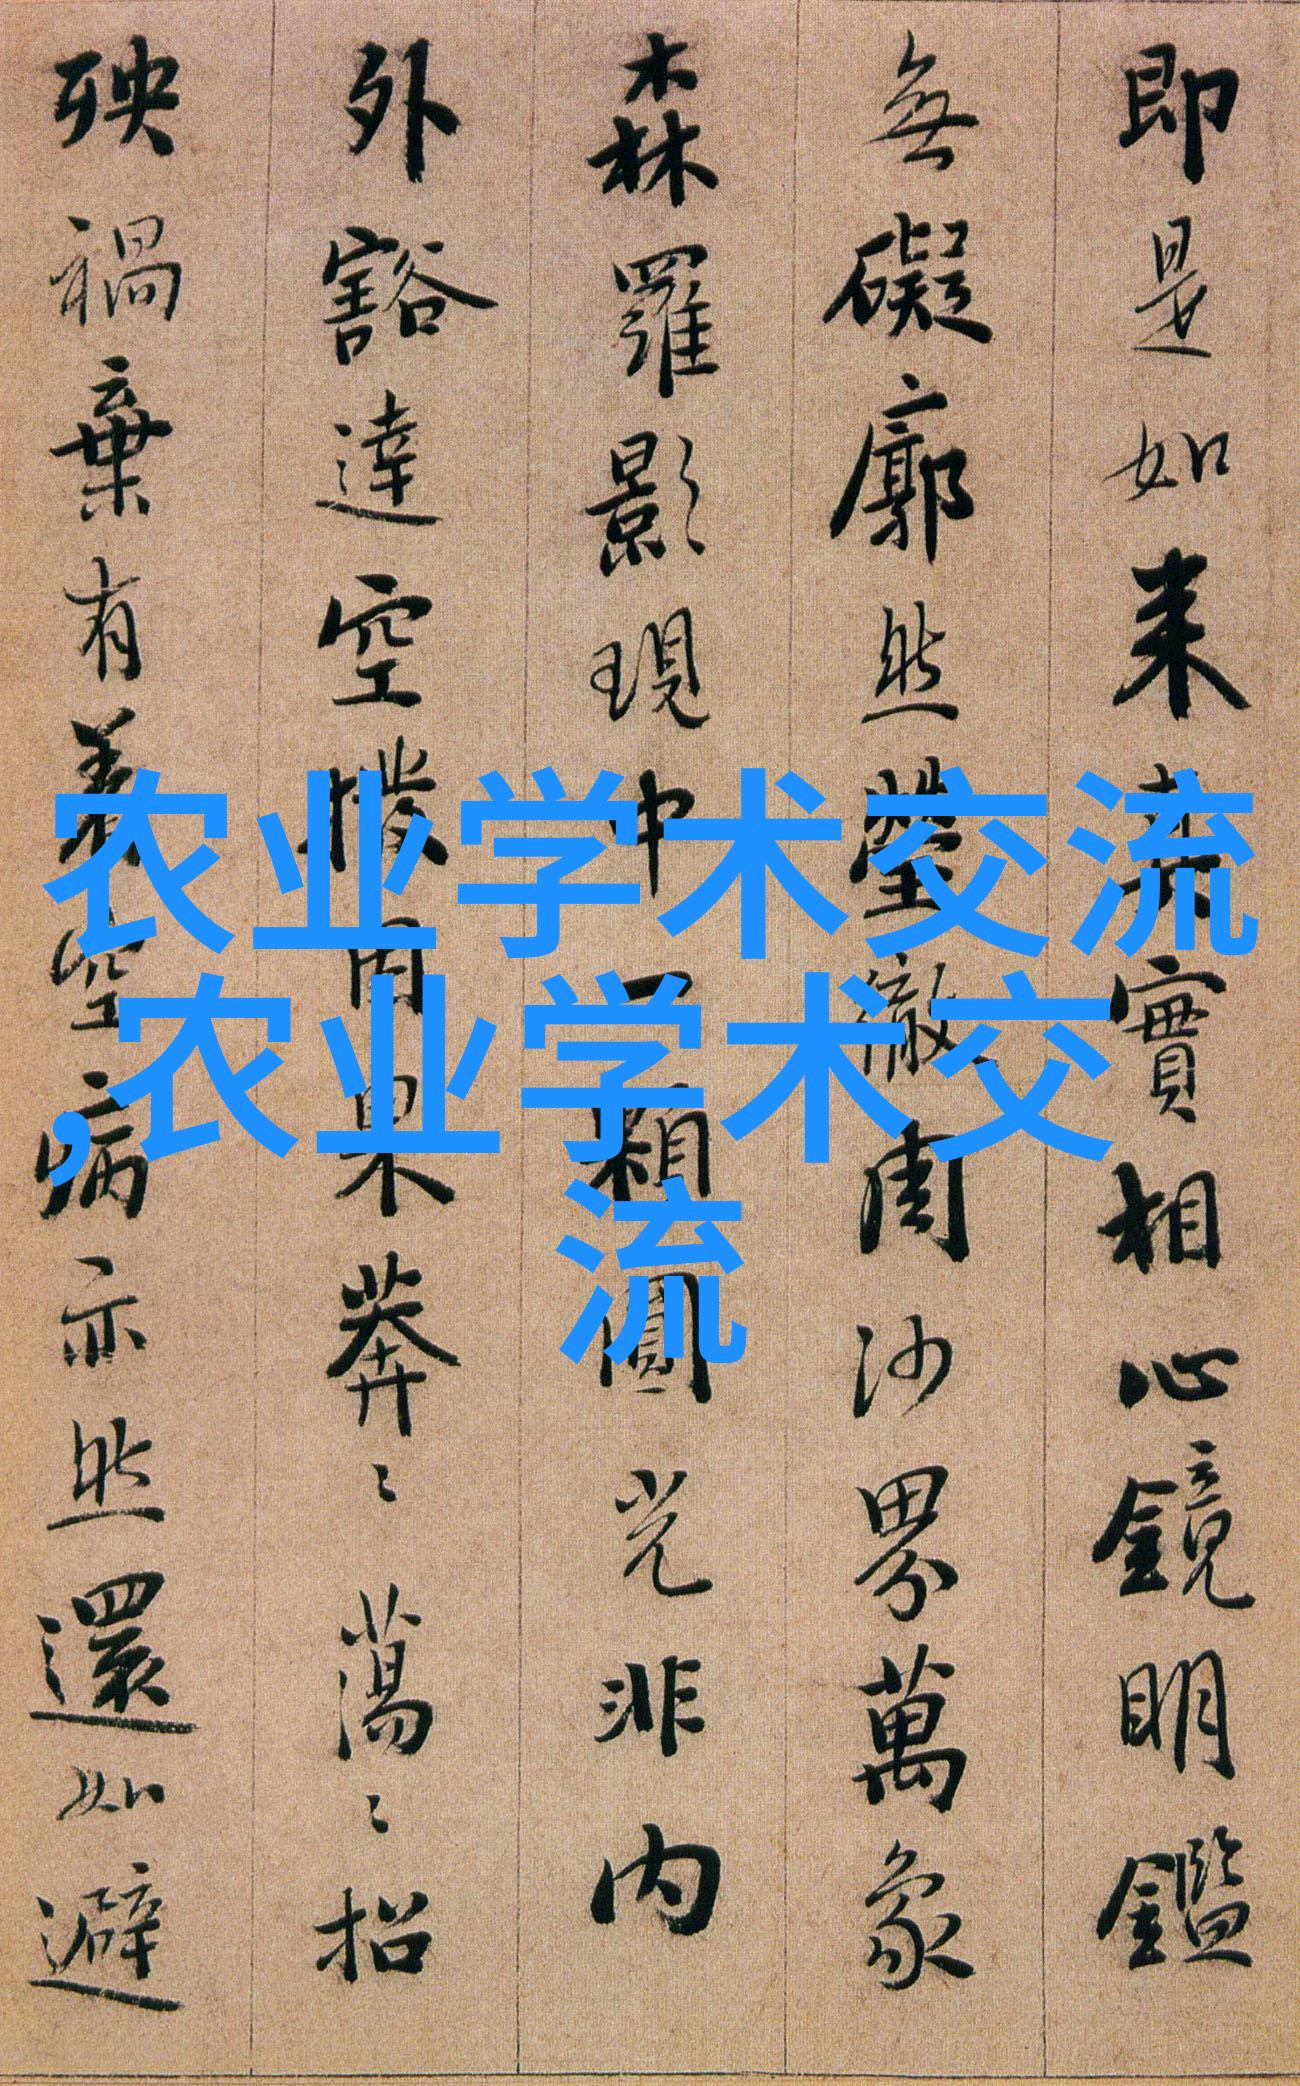 即是如来真實相心鏡明鑑
無礙廓然瑩徹周沙界萬象
森羅影現中一顆圓光非内
外豁達空撥因果莽〻蕩〻招
殃禍棄有著空病亦然還如避
农业学术交流
,农业学术交
流